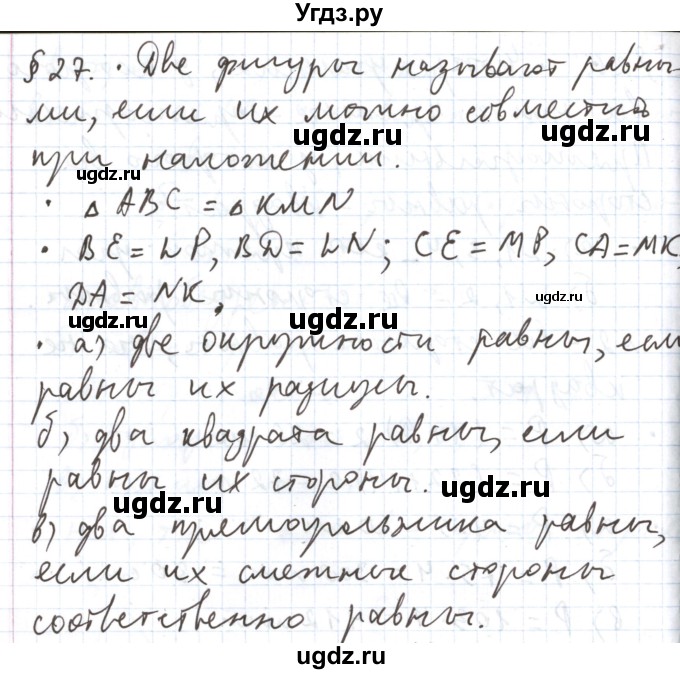 Угдз.ру
§27. · Две фигуры называют равны-
ми, если их можно совместить
ugdz.ru
ugdz.ru
при наложении.
ugdz.ru
· △ABC = △KMN
· BE = LP, BD = LN; CE = MP, CA = MK,
DA = NK.
ugdz.ru
· а) две окружности равны, если
ugdz.ru
ugdz.ru
равны их радиусы.
б) два квадрата равны, если
равны их стороны.
ugdz.ru
ugdz.ru
в) два прямоугольника равны,
если их смежные стороны
соответственно равны.
ugdz.ru
ugdz.ru